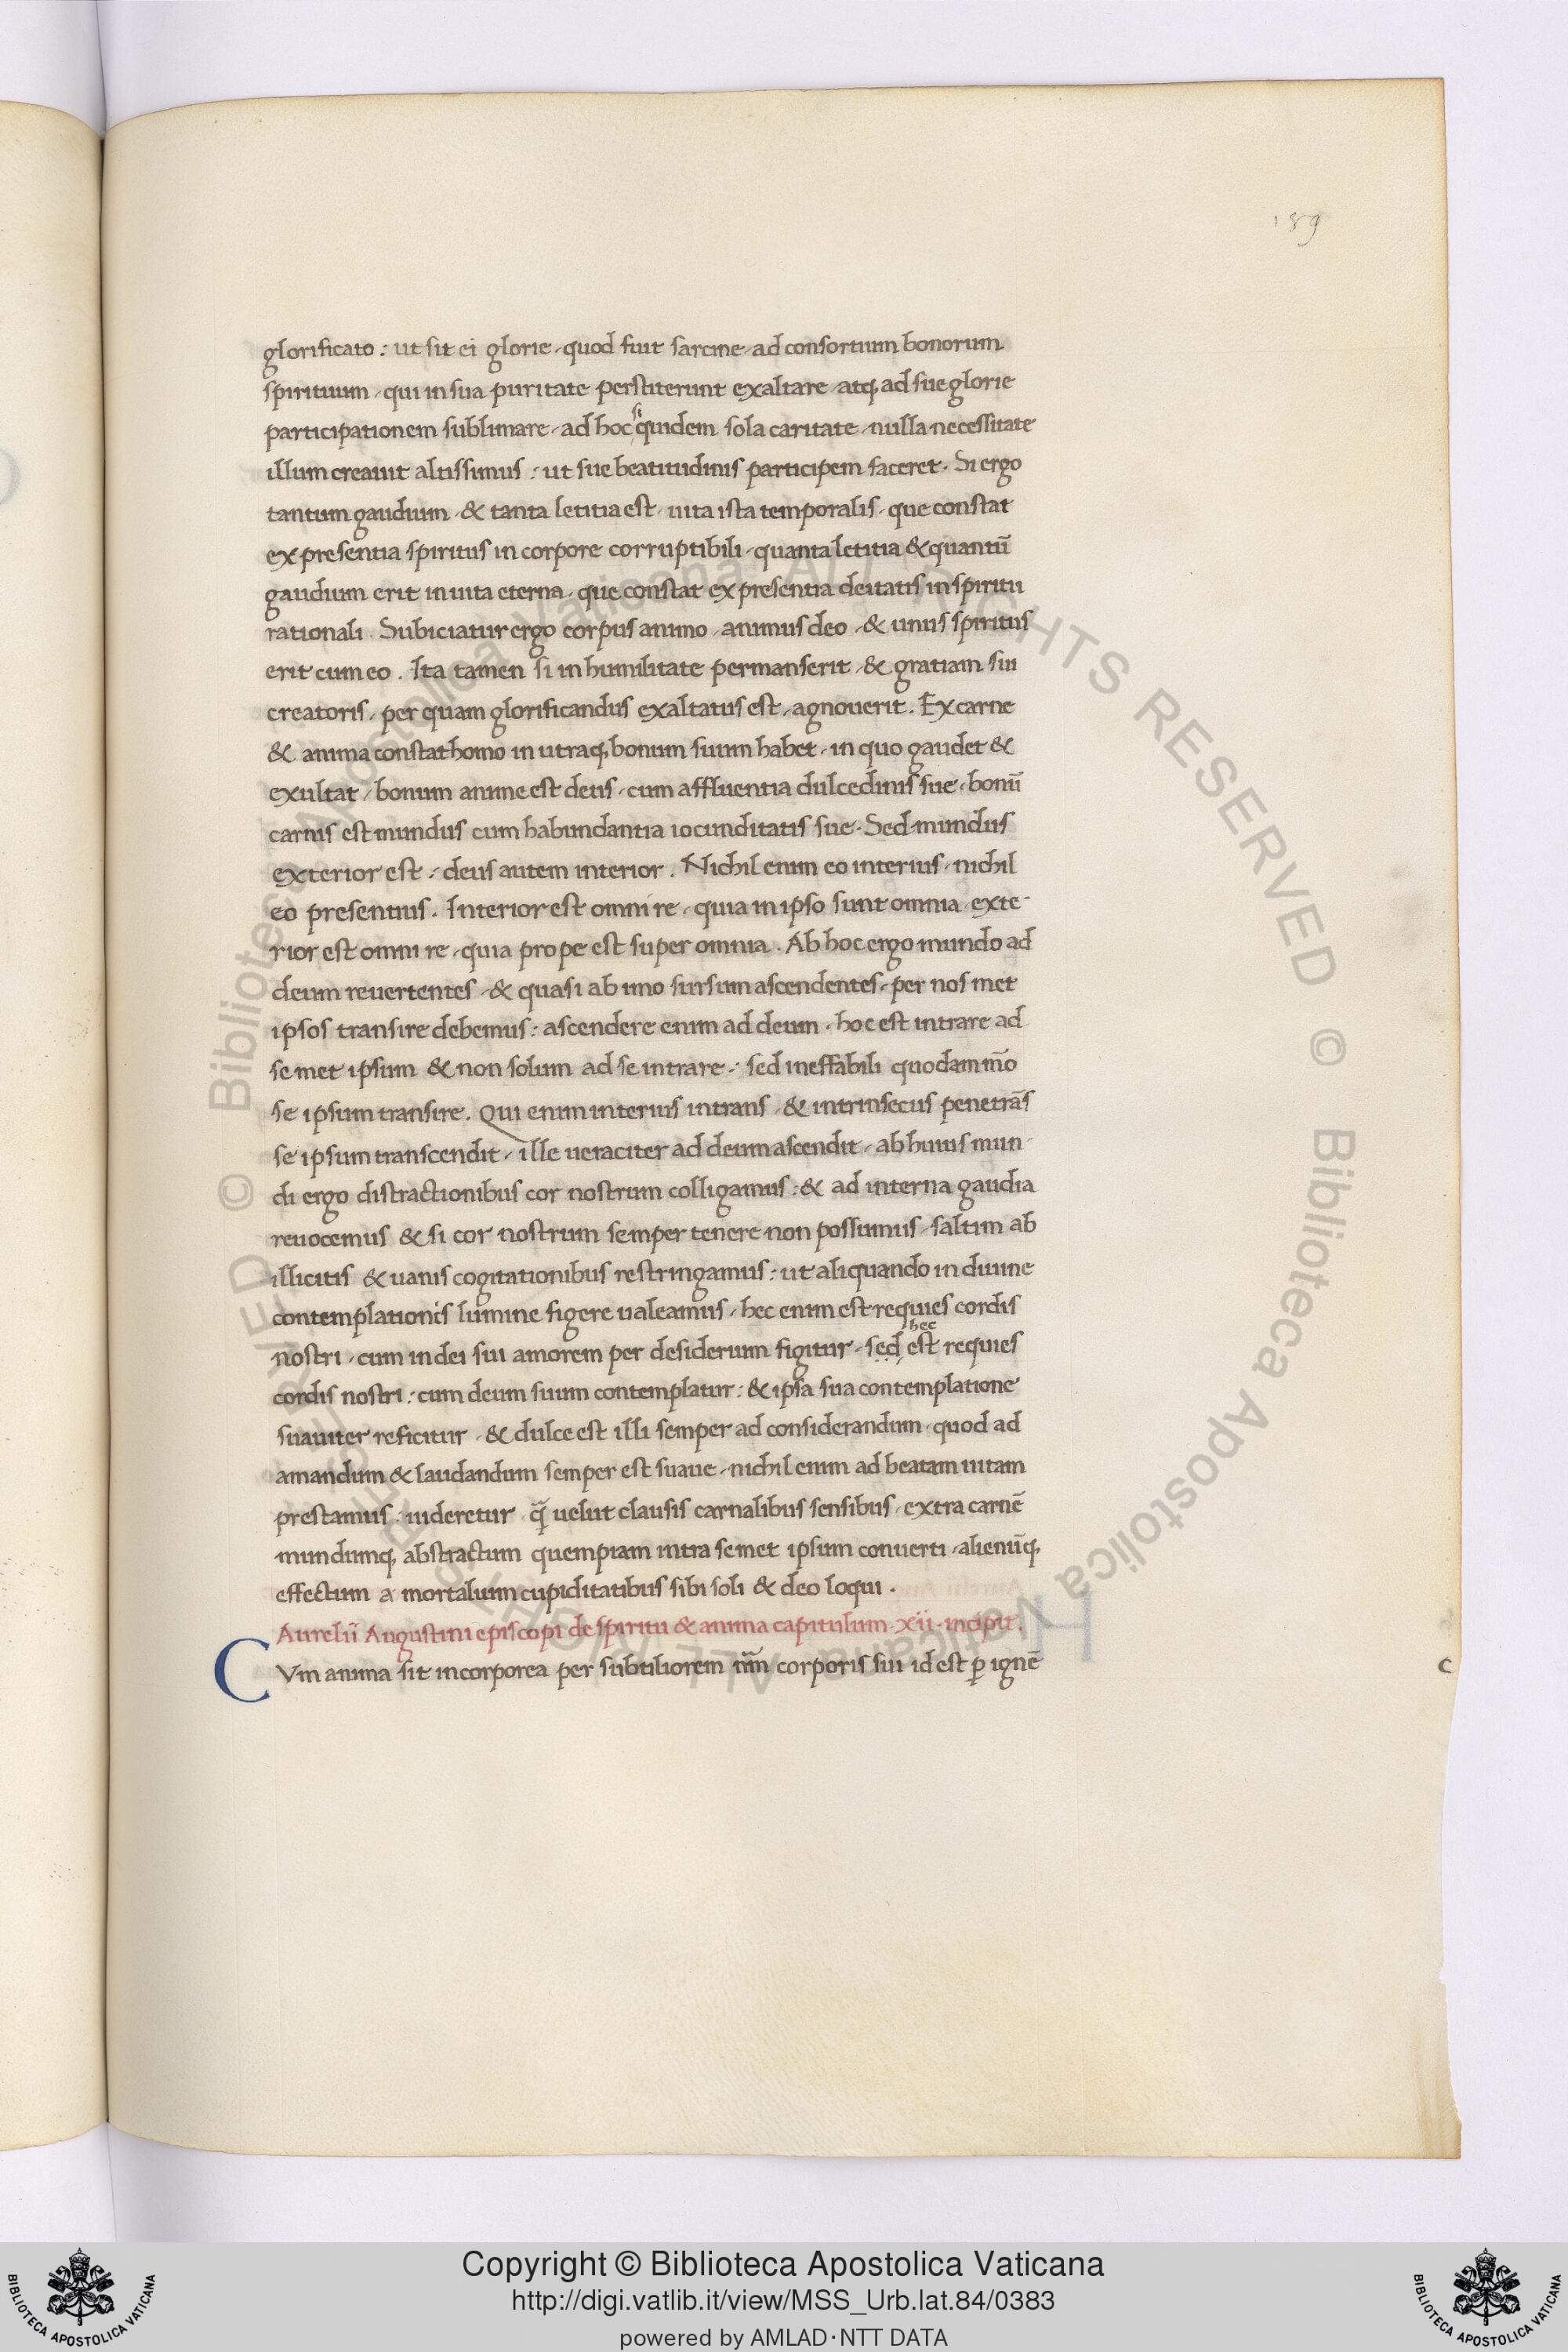 189
glorificato : ut sit ei glorie, quod fuit sarcine, ad consortium bonorum
spirituum, qui in sua puritate perstiterunt exaltare, atq; ad sue glorie
participationem sublimare, ad hoc siquidem sola caritate, nulla necessitate
illum creauit altissimus : ut sue beatitudinis participem faceret. Si ergo
tantum gaudium, & tanta letitia est, uita ista temporalis, que constat
ex presentia spiritus in corpore corruptibili, quanta letitia & quantũ
gaudium erit in uita eterna, que constat ex presentia deitatis in spiritu
rationali. Subiciatur ergo corpus animo, animus deo, & unus spiritus
erit cum eo. Ita tamen si in humilitate permanserit, & gratiam sui
creatoris, per quam glorificandus exaltatus est, agnouerit. Ex carne
& anima constat homo in utraq; bonum suum habet, in quo gaudet &
exultat, bonum anime est deus, cum affluentia dulcedinis sue, bonũ
carnis est mundus cum habundantia iocunditatis sue. Sed mundus
exterior est : deus autem interior. Nichil enim eo interius, nichil
eo presentius. Interior est omni re, quia in ipso sunt omnia, exte-
rior est omni re, quia prope est super omnia. Ab hoc ergo mundo ad
deum reuertentes, & quasi ab imo sursum ascendentes, per nos met
ipsos transire debemus : ascendere enim ad deum, hoc est intrare ad
se met ipsum & non solum ad se intrare : sed ineffabili quodam mõ
se ipsum transire. Qui enim interius intrans, & intrinsecus penetrãs
se ipsum transcendit, ille ueraciter ad deum ascendit, ab huius mun-
di ergo distractionibus cor nostrum colligamus : & ad interna gaudia
reuocemus & si cor nostrum semper tenere non possumus, saltim ab
illicitis & uanis cogitationibus restringamus : ut aliquando in diuine
contemplationis lumine figere ualeamus, hec enim est requies cordis
hec
nostri, cum in dei sui amorem per desiderium figitur, sed est requies
cordis nostri : cum deum suum contemplatur : & ipsa sua contemplatione
suauiter reficitur, & dulce est illi semper ad considerandum, quod ad
amandum & laudandum semper est suaue, nichil enim ad beatam uitam
prestamus : uideretur, q̃ uelut clausis carnalibus sensibus, extra carnẽ
mundumq; abstractum quempiam intra semet ipsum conuerti, alienũq;
effectum a mortalium cupiditatibus sibi soli & deo loqui.
Aurelii Augustini episcopi de spiritu & anima capitulum xii incipit.
CVm anima sit incorporea per subtiliorem nãm corporis sui id est p̱ ignẽ
c
© Biblioteca Apostolica Vaticana ALL RIGHTS RESERVED © Biblioteca Apostolica Vaticana ALL RIGHTS RESERVED
Copyright © Biblioteca Apostolica Vaticana
http://digi.vatlib.it/view/MSS_Urb.lat.84/0383
powered by AMLAD·NTT DATA
BIBLIOTECA APOSTOLICA VATICANA
BIBLIOTECA APOSTOLICA VATICANA